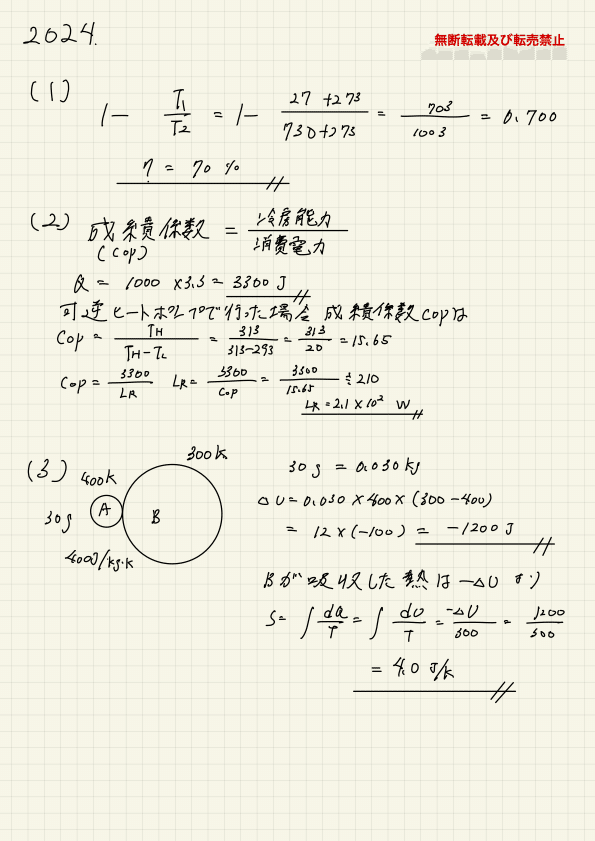 2024.
無断転載及び転売禁止
(1)
1 - T1/T2 = 1 - (27+273)/(730+273) = 703/1003 = 0.700
η = 70 %
(2) 成績係数 = 冷房能力/消費電力
(COP)
Q = 1000 × 3.3 = 3300 J
可逆ヒートポンプで行った場合 成績係数COPは
COP = TH/(TH-TL) = 313/(313-293) = 313/20 = 15.65
COP = 3300/LR LR = 3300/COP = 3300/15.65 ≒ 210
LR = 2.1 × 10² W
(3) 400K 300K
30g A B
400J/kg·K
30g = 0.030kg
ΔU = 0.030 × 400 × (300-400)
= 12 × (-100) = -1200 J
Bが吸収した熱は -ΔU より
S = ∫ dQ/T = ∫ dU/T = -ΔU/300 = 1200/300
= 4.0 J/K